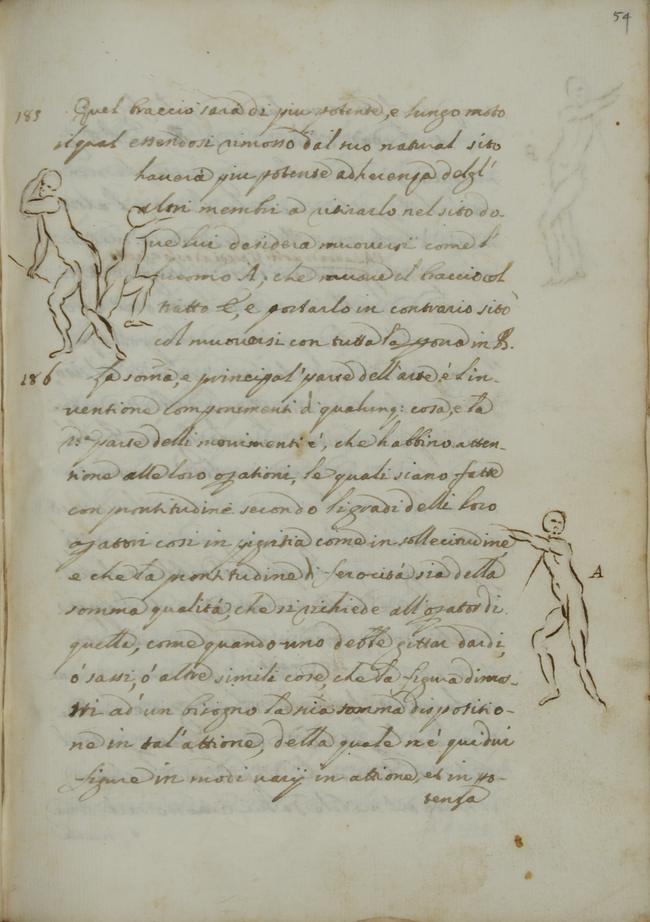 54
185 Quel braccio sarà di piu potente, e lungo moto
il qual essendosi rimosso dal suo natural sito
haverà piu potente adherenza degl'
altri membri a ritirarlo nel sito do-
ve lui desidera muoversi come l'
huomo A, che muove il braccio col
tratto E, e portarlo in contrario sito
col muoversi con tutta la persona in B.
186 La som̃a, e principal' parte dell'arte, è l'in-
ventione componimenti di qualunq: cosa, e la
2ᵃ parte delli movimenti è, che habbino atten-
tione alle loro operationi, le quali siano fatte
con prontitudine secondo li gradi delli loro
operatori così in pigritia come in sollecitudine
e che la prontitudine di ferocità sia della
somma qualità, che si richiede all'operator di
quella, come quando uno debbe gittar dardi,
ò sassi, ò altre simili cose, che la figura dimos-
tri ad' un bisogno la sua somma dispositio-
ne in tal' attione, della quale n'è qui dui
figure in modi varij in attione, et in po-
tenza
A